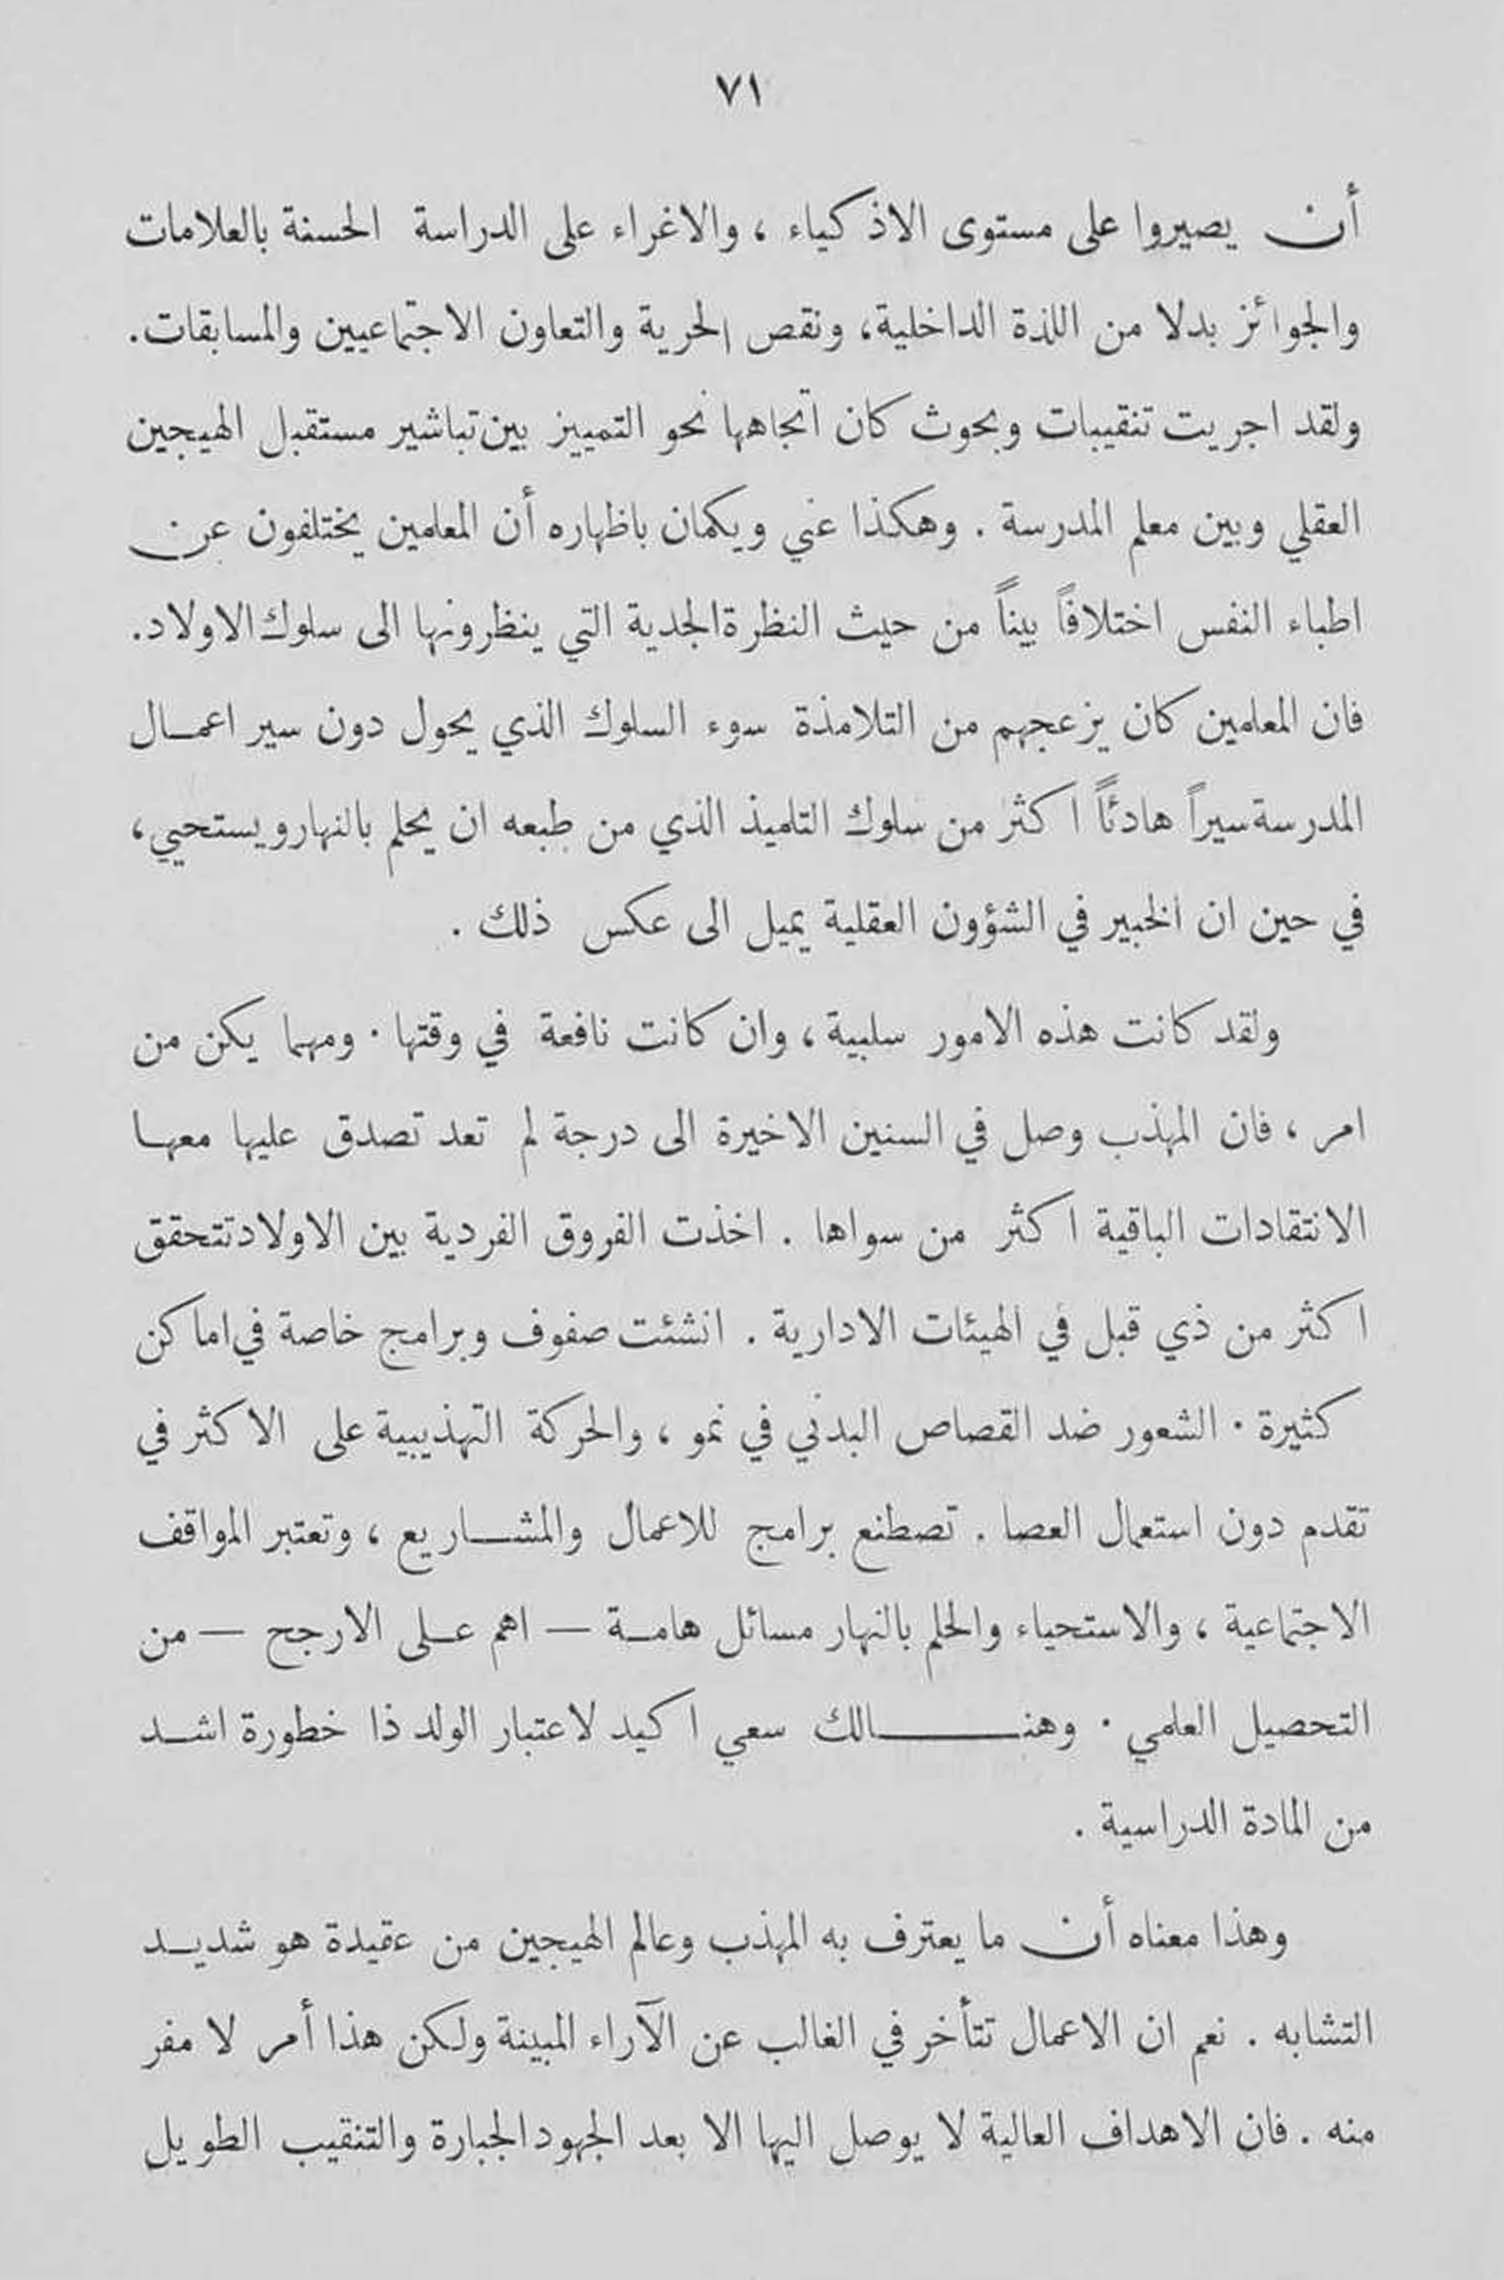 ٧١
أن يصيروا على مستوى الاذكياء ، والاغراء على الدراسة الحسنة بالعلامات
والجوائز بدلا من اللذة الداخلية، ونقص الحرية والتعاون الاجتماعيين والمسابقات.
ولقد اجريت تنقيبات وبحوث كان اتجاهها نحو التمييز بين تباشير مستقبل الهيجين
العقلي وبين معلم المدرسة . وهكذا عني ويكمان باظهاره أن المعلمين يختلفون عن
اطباء النفس اختلافاً بيناً من حيث النظرة الجدية التي ينظرونها الى سلوك الاولاد.
فان المعلمين كان يزعجهم من التلامذة سوء السلوك الذي يحول دون سير اعمال
المدرسة سيراً هادئاً اكثر من سلوك التلميذ الذي من طبعه ان يحلم بالنهار ويستحيي ،
في حين ان الخبير في الشؤون العقلية يميل الى عكس ذلك .
ولقد كانت هذه الامور سلبية ، وان كانت نافعة في وقتها . ومهما يكن من
امر ، فان المهذب وصل في السنين الاخيرة الى درجة لم تعد تصدق عليها معها
الانتقادات الباقية اكثر من سواها . اخذت الفروق الفردية بين الاولاد تتحقق
اكثر من ذي قبل في الهيئات الادارية . انشئت صفوف وبرامج خاصة في اماكن
كثيرة . الشعور ضد القصاص البدني في نمو ، والحركة التهذيبية على الاكثر في
تقدم دون استعمال العصا . تصطنع برامج للاعمال والمشاريع ، وتعتبر المواقف
الاجتماعية ، والاستحياء والحلم بالنهار مسائل هامة — اهم على الارجح — من
التحصيل العلمي . وهنالك سعي اكيد لاعتبار الولد ذا خطورة اشد
من المادة الدراسية .
وهذا معناه أن ما يعترف به المهذب وعالم الهيجين من عقيدة هو شديد
التشابه . نعم ان الاعمال تتأخر في الغالب عن الآراء المبينة ولكن هذا أمر لا مفر
منه . فان الاهداف العالية لا يوصل اليها الا بعد الجهود الجبارة والتنقيب الطويل